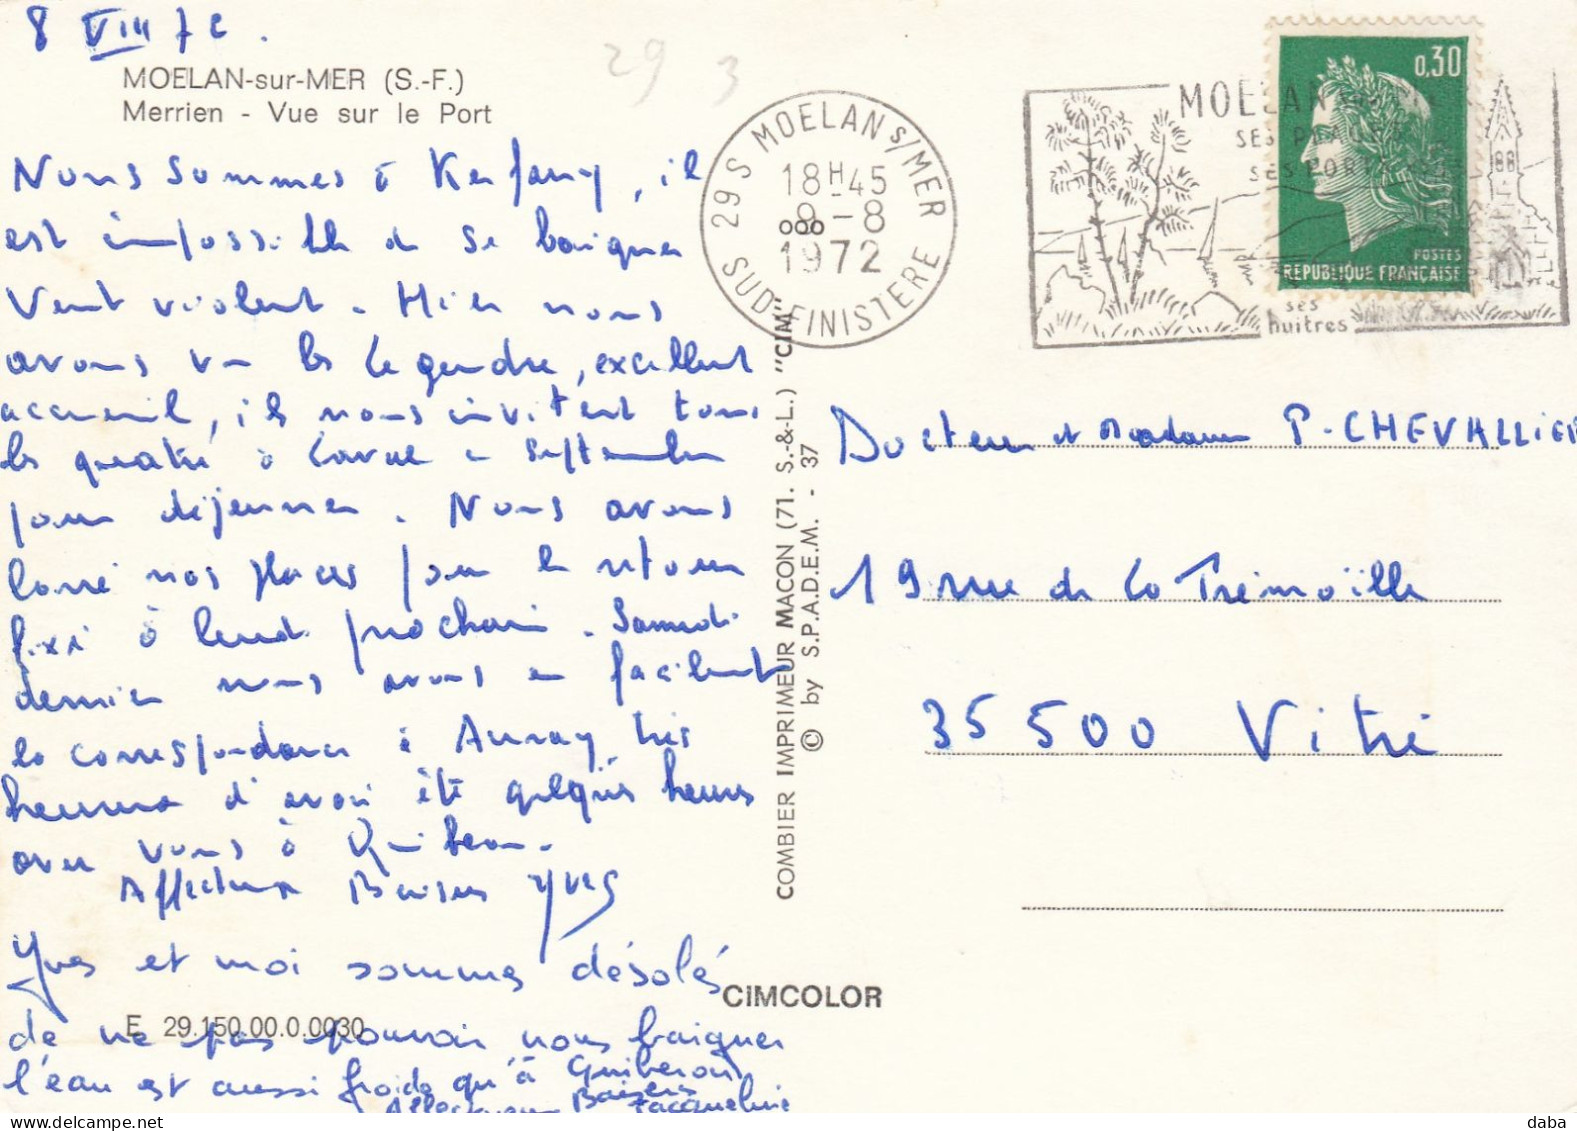 8 VIII 72.
MOELAN-sur-MER (S.-F.)
Merrien - Vue sur le Port
29 3
Nous sommes à Kerfany, il
est impossible de se baigner
Vent violent. Hier nous
avons vu les Legendre, excellent
accueil, ils nous invitent tous
les quatre à Laval en Septembre
pour déjeuner. Nous avons
loué nos places pour le retour
fixé à lundi prochain. Samedi
dernier nous avons eu facilement
la correspondance à Auray, très
heureux d'avoir été quelques heures
avec vous à Quiberon.
Affectueux Baisers Yves
Yves et moi sommes désolés
de ne pas pouvoir nous baigner
l'eau est aussi froide qu'à Quiberon
Affectueux Baisers Jacqueline
E 29.150.00.0.0030
CIMCOLOR
COMBIER IMPRIMEUR MACON (71. S.-&-L.) "CIM"
© by S.P.A.D.E.M. - 37
29 S MOELAN S/MER
18H45
8-8
1972
SUD-FINISTERE
MOELAN
SES PLAGES
SES PORTS
ses
huitres
0,30
POSTES
REPUBLIQUE FRANÇAISE
Docteur et Madame P. CHEVALLIER
19 rue de La Trémoïlle
35500 Vitré
daba